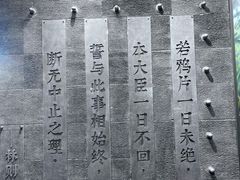 若鸦片一日未绝，
本大臣一日不回，
誓与此事相始终，
断无中止之理。
林则